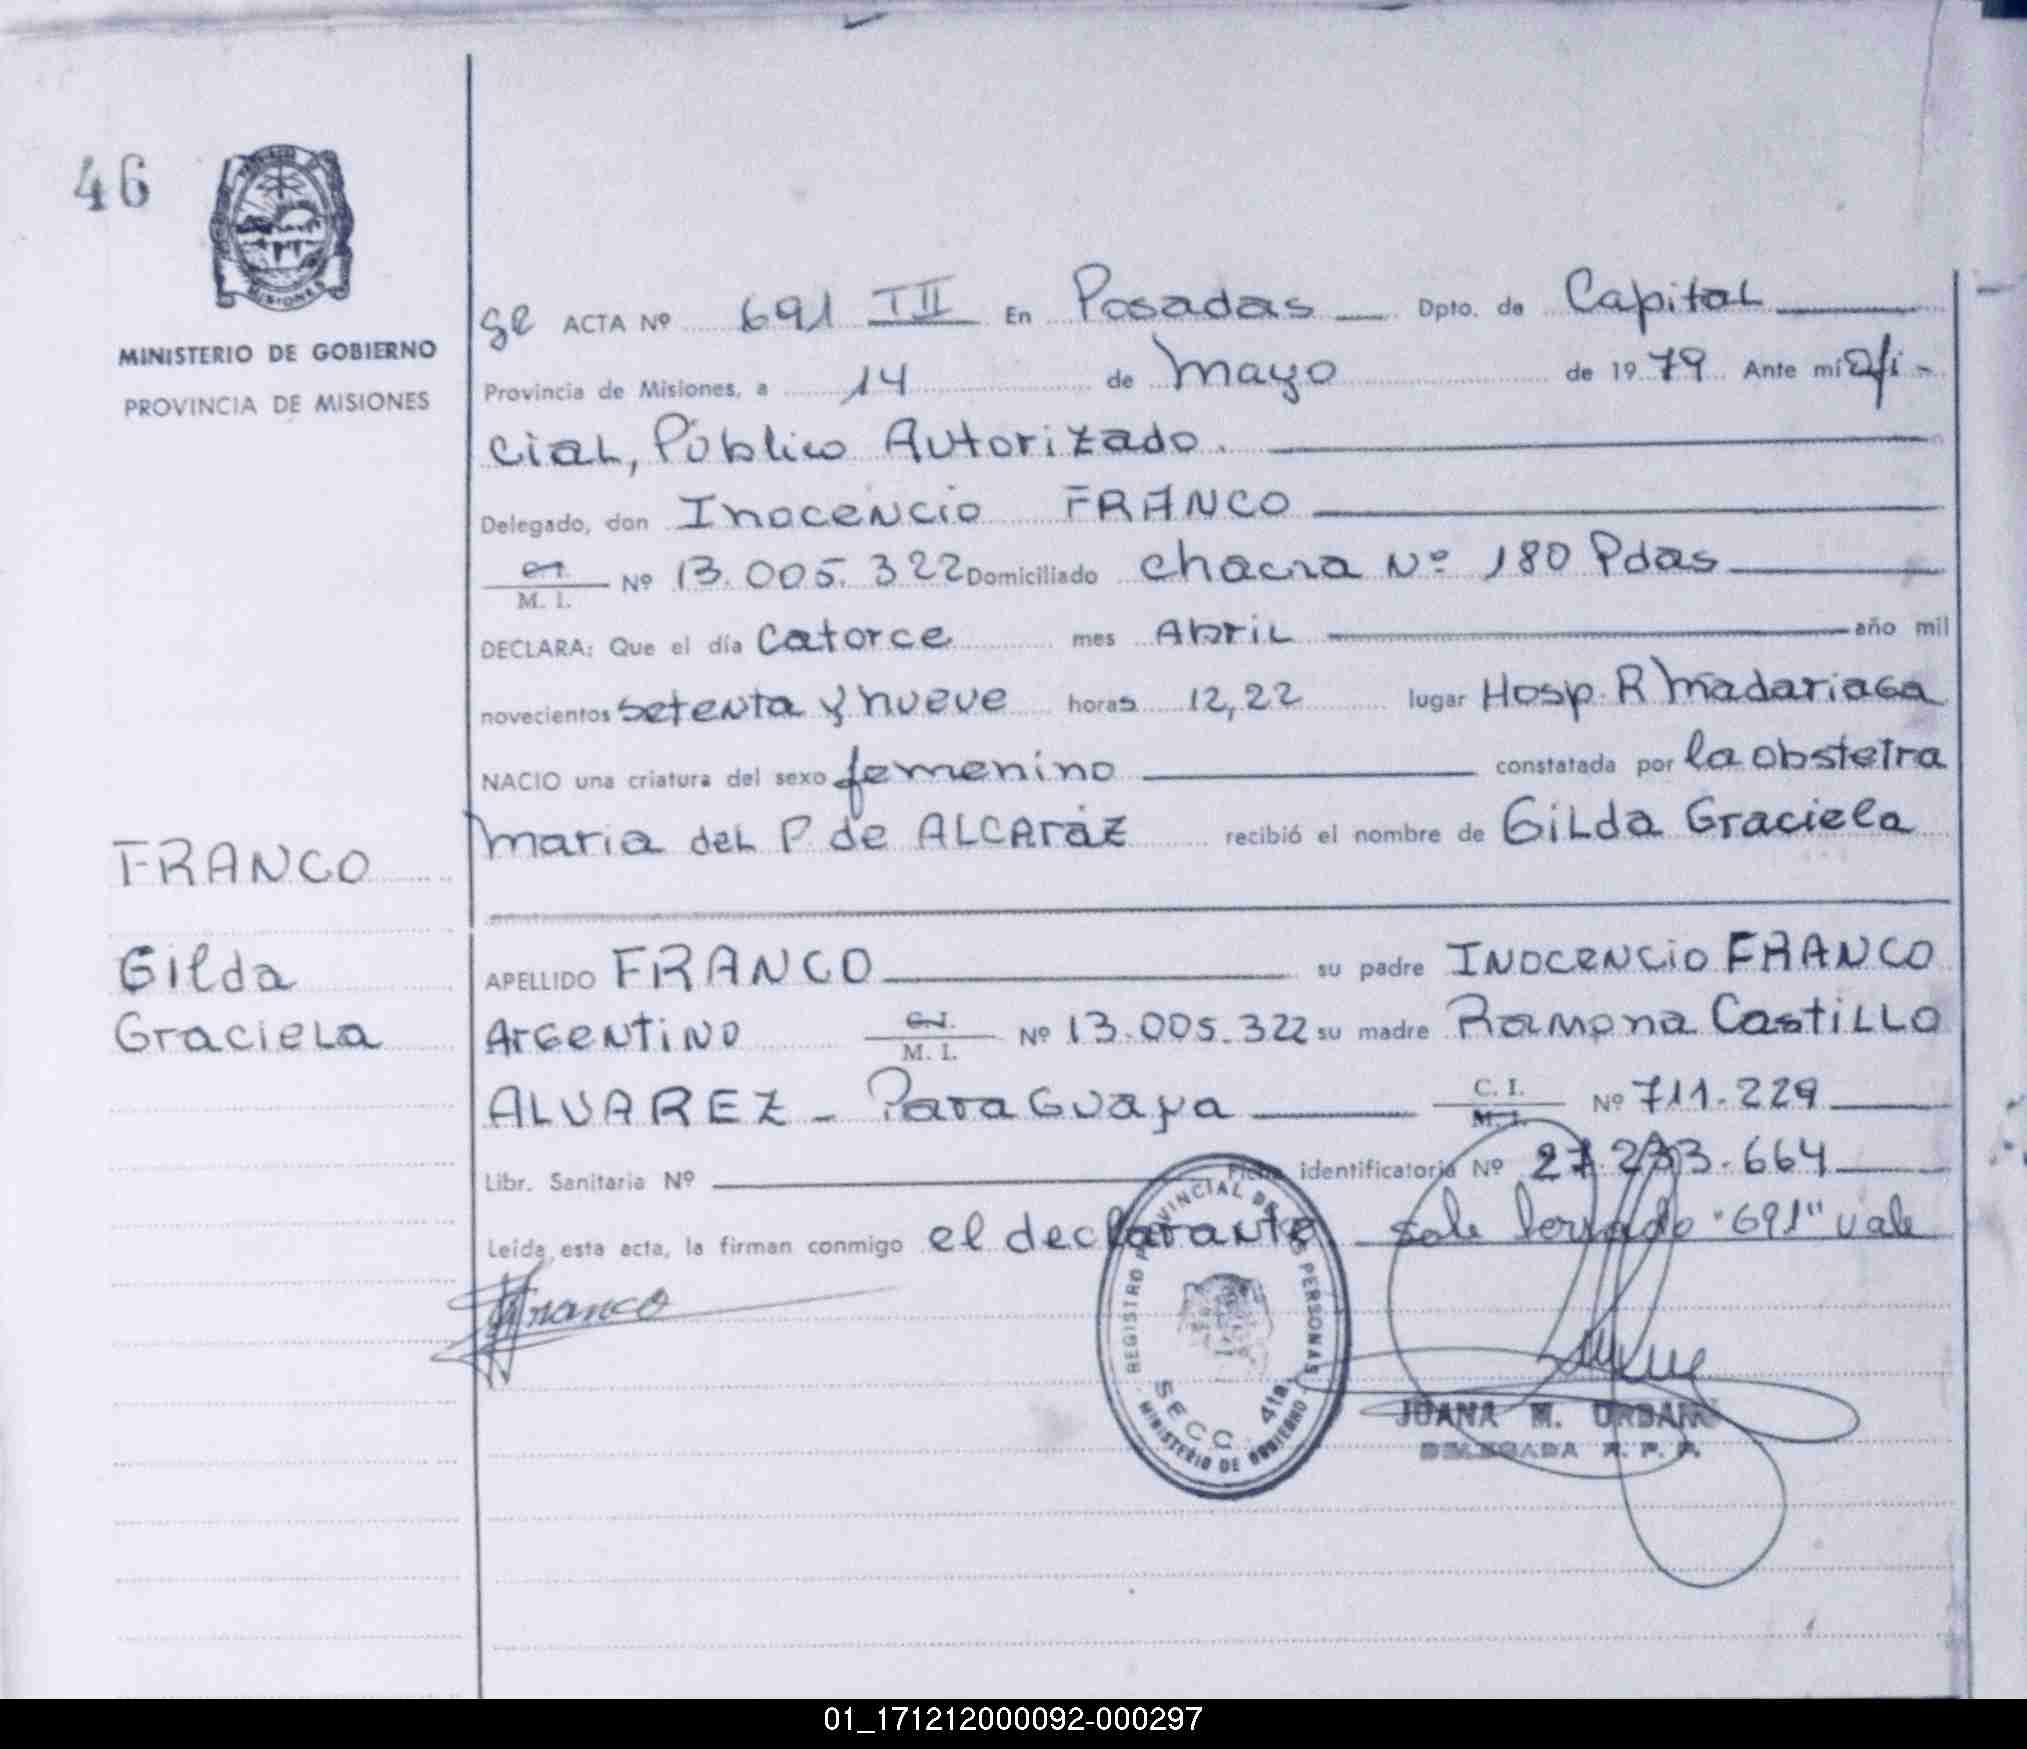 46
MISIONES
MINISTERIO DE GOBIERNO
PROVINCIA DE MISIONES
ACTA Nº 691 III En Posadas Dpto. de Capital
Provincia de Misiones, a 14 de Mayo de 1979 Ante mí Ofi-
cial, Público Autorizado.
Delegado, don Inocencio FRANCO
M. I. Nº 13.005.322 Domiciliado chacra Nº 180 Pdas
DECLARA: Que el día Catorce mes Abril año mil
novecientos setenta y nueve horas 12,22 lugar Hosp. R Madariaga
NACIO una criatura del sexo femenino constatada por la obstetra
Maria del P. de ALCARáZ recibió el nombre de Gilda Graciela
FRANCO
Gilda
Graciela
APELLIDO FRANCO su padre INOCENCIO FRANCO
Argentino M. I. Nº 13.005.322 su madre Ramona Castillo
ALVAREZ - Paraguaya C. I. M. I. Nº 711.229
Libr. Sanitaria Nº Ficha identificatoria Nº 27.233.664
Leída esta acta, la firman conmigo el declarante sobre borrado "691" vale
Franco
REGISTRO PROVINCIAL DE LAS PERSONAS
SECC. 4ta.
MINISTERIO DE GOBIERNO
JUANA M. URBAN
DELEGADA R. P. P.
01_171212000092-000297